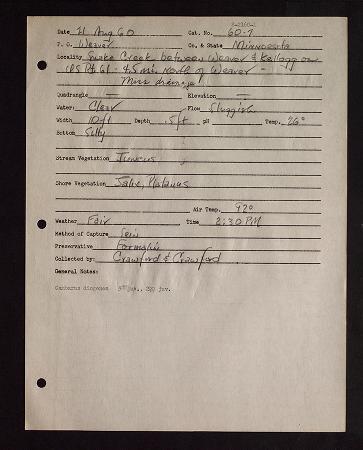 Date 21 Aug 60 Cat. No. 60-7
P. O. Weaver Co. & State Minnesota
Locality Snake Creek between Weaver & Kellogg on
US Rt 61 - 4.5 mi. North of Weaver -
Miss drainage
Quadrangle — Elevation —
Water: Clear Flow Sluggish
Width 10 ft Depth .5 ft pH Temp. 26°
Bottom Silty
Stream Vegetation Juncus
Shore Vegetation Salix, Platanus
Air Temp. 92°
Weather Fair Time 2:30 PM
Method of Capture Sein
Preservative Formalin
Collected by: Crawford & Crawford
General Notes:
Cambarus diogenes juv.